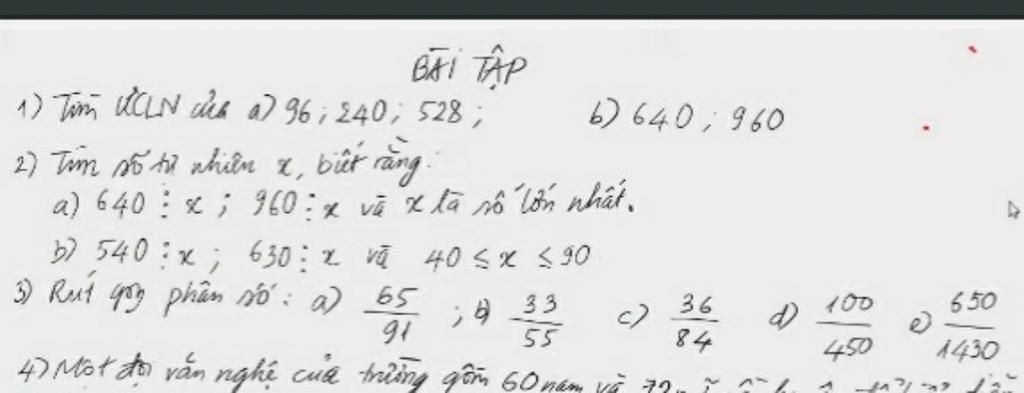 BÀI TẬP
1) Tìm ƯCLN của a) 96 ; 240 ; 528 ; b) 640 ; 960
2) Tìm số tự nhiên x, biết rằng:
a) 640 ⋮ x ; 960 ⋮ x và x là số lớn nhất.
b) 540 ⋮ x ; 630 ⋮ x và 40 ≤ x ≤ 90
3) Rút gọn phân số : a) 65/91 ; b) 33/55 c) 36/84 d) 100/450 e) 650/1430
4) Một đội văn nghệ của trường gồm 60 nam và